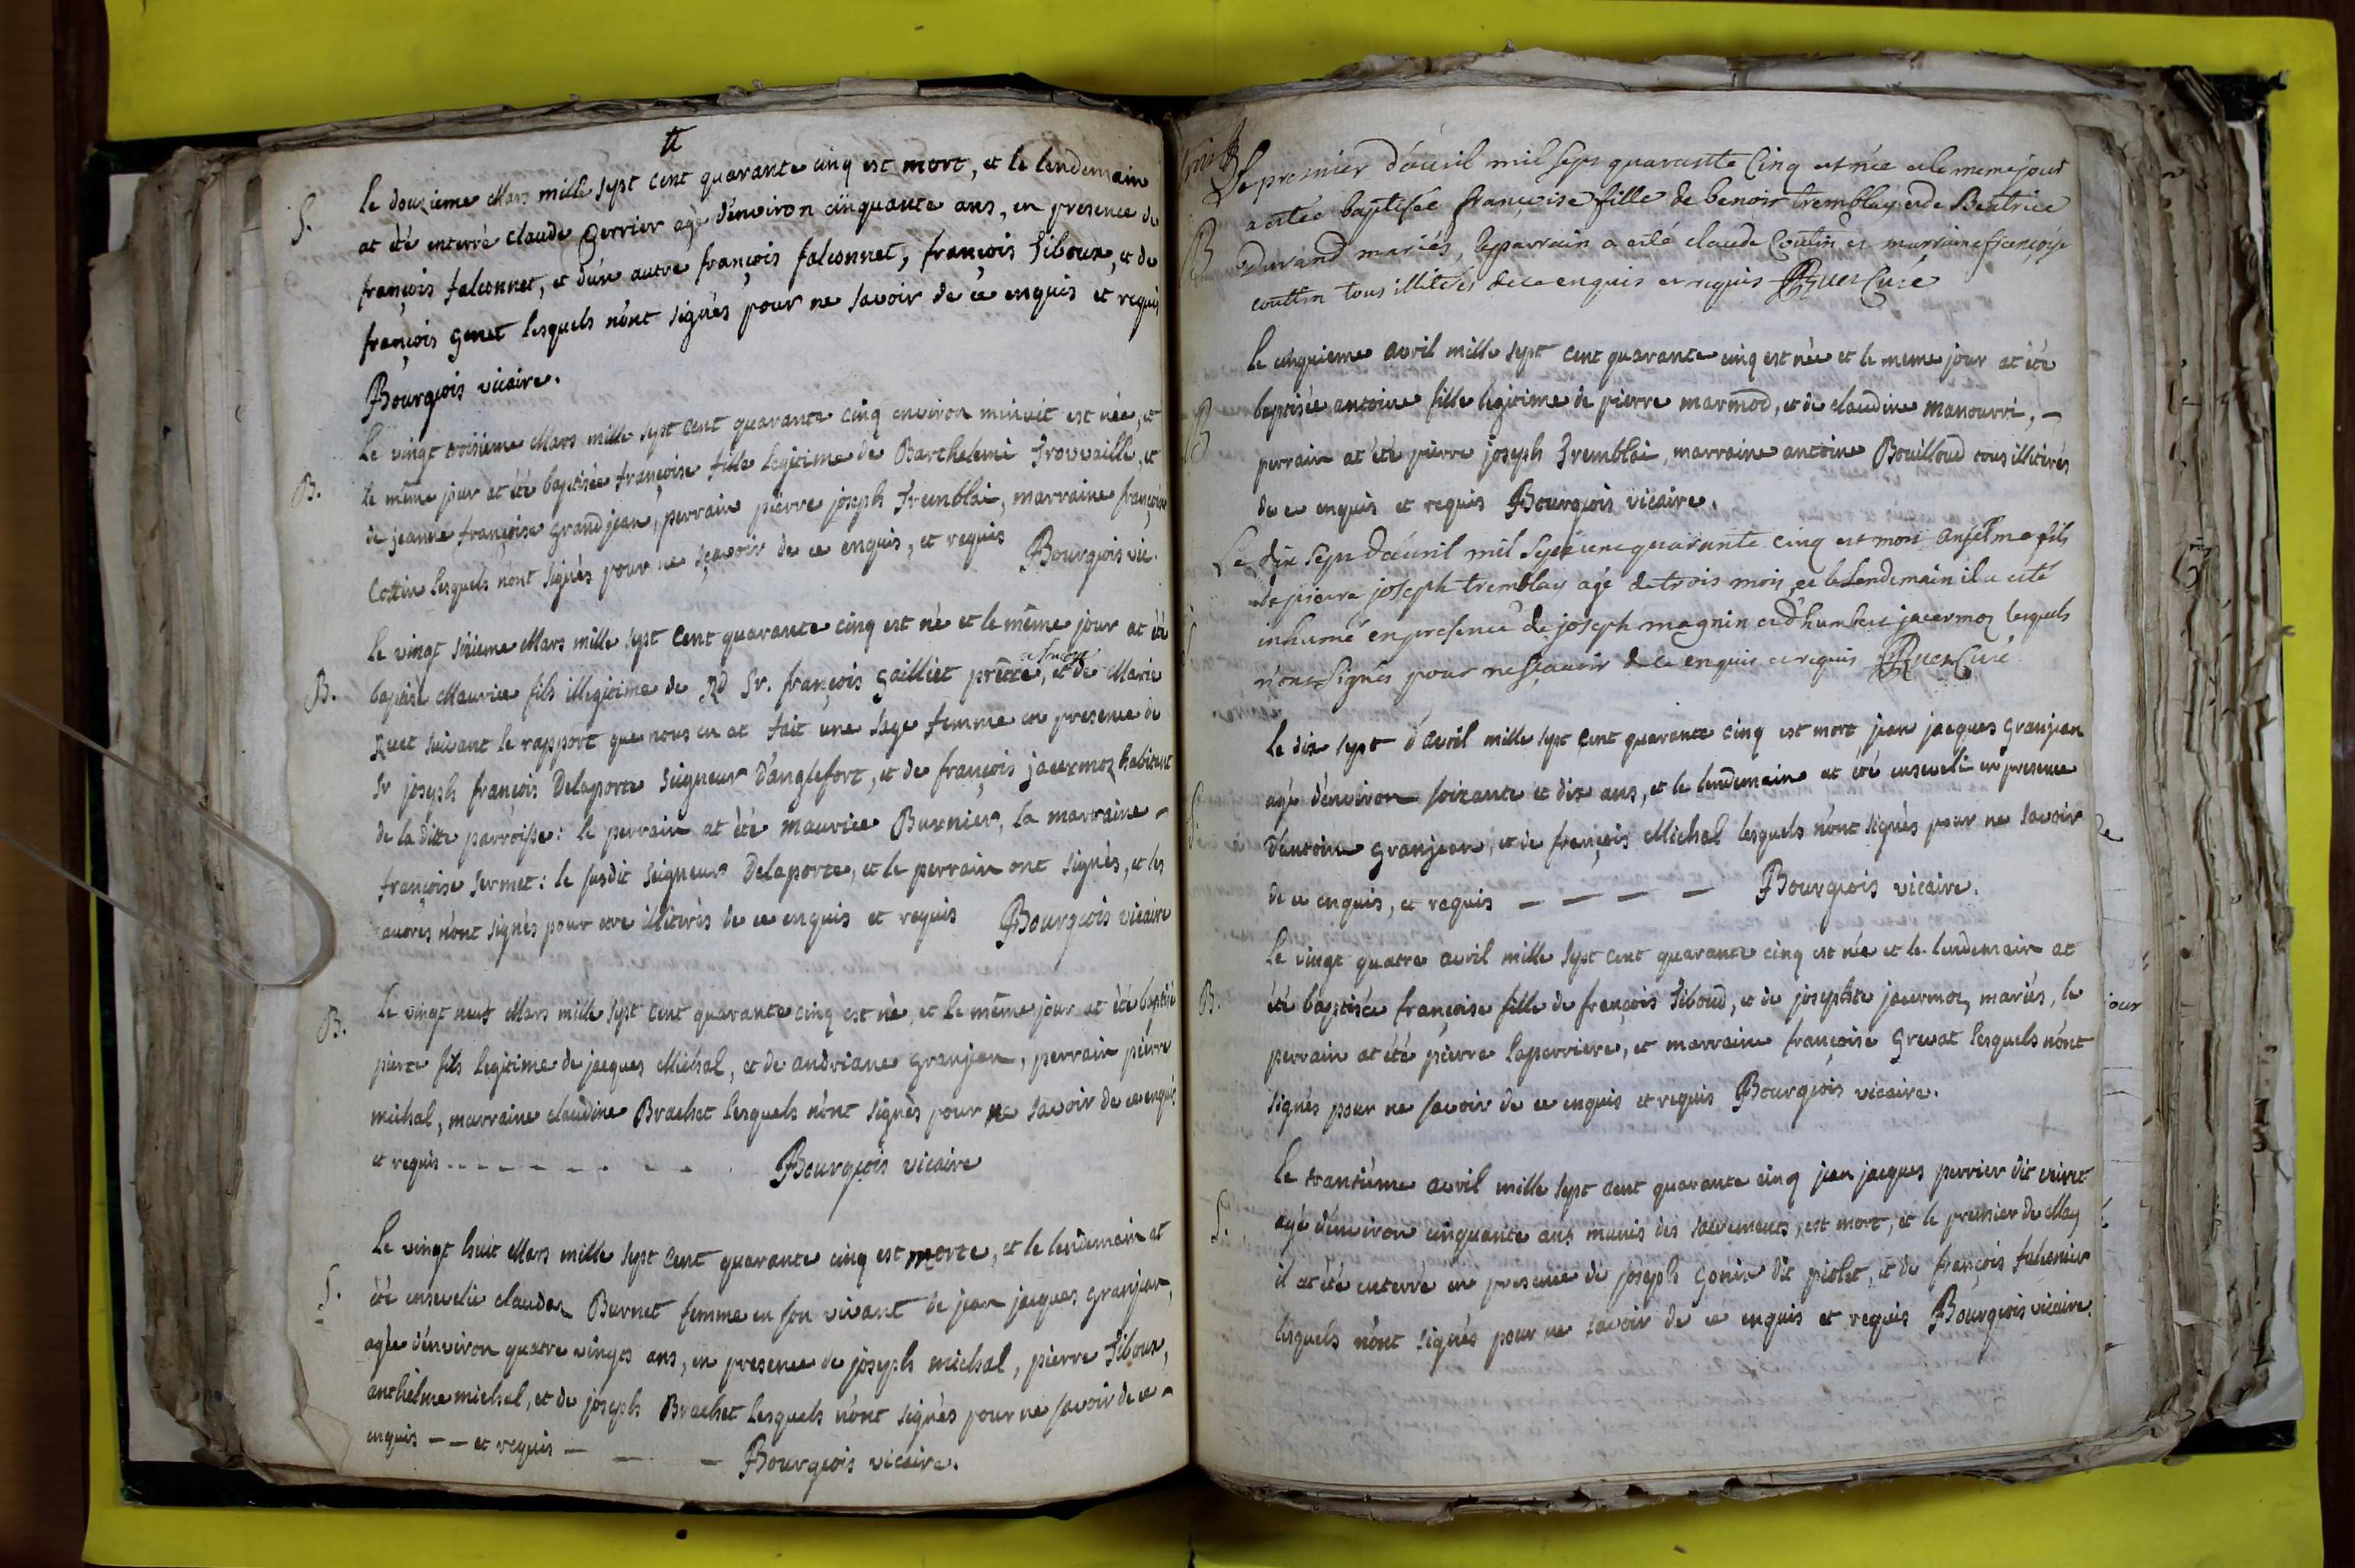 S. le douzieme Mars mille sept cent quarante cinq est mort, et le lendemain
at été enterré claude perrier agé d'environ cinquante ans, en presence de
françois falconnet, et d'un autre françois falconnet, françois Siboux, et de
françois genet lesquels n'ont signés pour ne savoir de ce enquis et requis
Bourgeois vicaire.
B. le vingt troisieme Mars mille sept cent quarante cinq environ minuit est née, et
le même jour at été baptisée françoise fille legitime de Barthelemi Trouvaille, et
de jeanne françoise grandjean, perrain pierre joseph Tremblai, marraine françoise
Cottin lesquels n'ont signés pour ne sçavoir de ce enquis, et requis Bourgeois vic.
B. le vingt sixieme Mars mille sept cent quarante cinq est né et le même jour at été
baptisé Maurice fils illegitime de Rd Sr. françois gailliet prêtre, et de Marie
Ruet suivant le rapport que nous en at fait une sage femme en presence de
Sr joseph françois Delaporte seigneur d'anglefort, et de françois jacermoz habitant
de la ditte parroisse : le perrain at été maurice Burnier, la marraine
françoise sermet : le susdit seigneur Delaporte, et le perrain ont signés, et les
autres n'ont signés pour etre illiterés de ce enquis et requis Bourgeois vicaire
B. le vingt neuf Mars mille sept cent quarante cinq est né, et le même jour at été baptisé
pierre fils legitime de jacques Michal, et de andriane granjean, perrain pierre
michal, marraine claudine Brachet lesquels n'ont signés pour ne savoir de ce enquis
et requis - - - - - - - - - Bourgeois vicaire
S. Le vingt huit Mars mille sept cent quarante cinq est morte, et le lendemain at
été ensevelie claudaz Burnet femme en son vivant de jean jacques granjean,
agée d'environ quatre vingts ans, en presence de joseph michal, pierre Siboux,
anthelme michal, et de joseph Brachet lesquels n'ont signés pour ne savoir de ce
enquis - - et requis - - - Bourgeois vicaire.
Le premier d'avril mil sept quarante Cinq est née et le meme jour
B a estée baptisée françoise fille de benoit tremblay et de Beatrice
Durand mariés, le parrain a esté claude Coutin et marraine françoise
couttin tous illiterés de ce enquis et requis Curé
le cinquieme avril mille sept cent quarante cinq est née et le meme jour at été
B baptisée antoine fille legitime de pierre marmod, et de claudine manourri, -
perrain at été pierre joseph Tremblai, marraine antoine Bouilloud tous illiterés
de ce enquis et requis Bourgeois vicaire.
Le dix Sept d'avril mil Sept cent quarante cinq est mort anselme fils
de pierre joseph tremblay agé de trois mois et le Lendemain il a esté
inhumé en presence de joseph magnin et d'humbert jacermoz lesquels
n'ont Signés pour ne sçavoir de ce enquis et requis Curé
le dix sept d'avril mille sept cent quarante cinq est mort jean jacques granjean
S. agé d'environ soixante et dix ans, et le lendemain at été enseveli en presence
d'antoine granjean, et de françois Michal lesquels n'ont signés pour ne savoir
de ce enquis, et requis - - - - Bourgeois vicaire.
le vingt quatre avril mille sept cent quarante cinq est née et le lendemain at
B. été baptisée françoise fille de françois Siboud, et de josephte jacermoz mariés, le
perrain at été pierre laperriere, et marraine françoise grevat lesquels n'ont
signés pour ne savoir de ce enquis et requis Bourgeois vicaire.
le trantième avril mille sept cent quarante cinq jean jacques perrier dit
S. agé d'environ cinquante ans munis des sacrements, est mort, et le premier de May
il at été enterré en presence de joseph gonin dit piolet, et de françois
lesquels n'ont signés pour ne savoir de ce enquis et requis Bourgeois vicaire.
jour